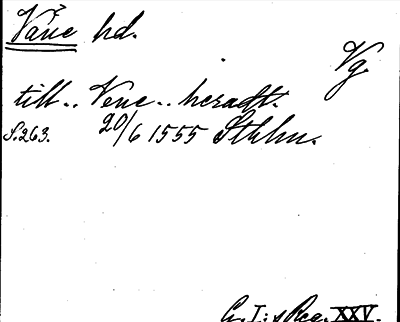 Väne hd.
Vg.
till.. Vene.. heradt.
S.263. 20/6 1555 Sthlm.
G. I:s Reg. XXV.